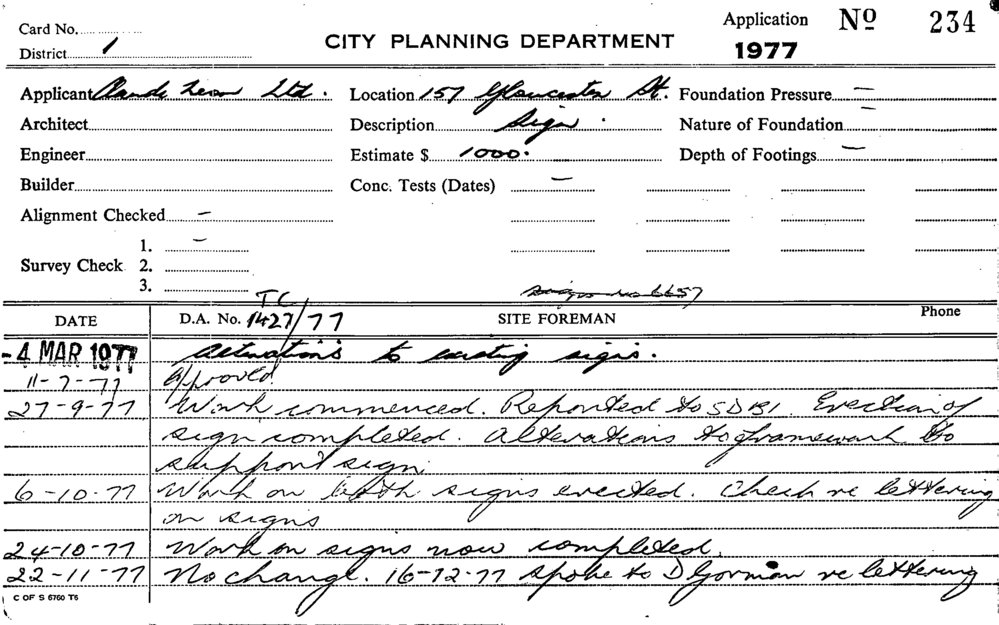 Card No. Application No 234
District 1 CITY PLANNING DEPARTMENT 1977
Applicant Claude Neon Ltd. Location 157 Gloucester St. Foundation Pressure —
Architect Description Sign. Nature of Foundation —
Engineer Estimate $ 1000. Depth of Footings —
Builder Conc. Tests (Dates) —
Alignment Checked —
1. —
Survey Check 2.
3.
TC
DATE D.A. No. 1427/77 SITE FOREMAN Phone
-4 MAR 1977 Alterations to existing signs.
11-7-77 Approved
27-9-77 Work commenced. Reported to SDBI. Erection of
sign completed. Alterations to framework to
support sign
6-10-77 Work on both signs erected. Check re lettering
on signs
24-10-77 Work on signs now completed.
22-11-77 No change. 16-12-77 Spoke to D Gorman re lettering
C OF S 6760 T6